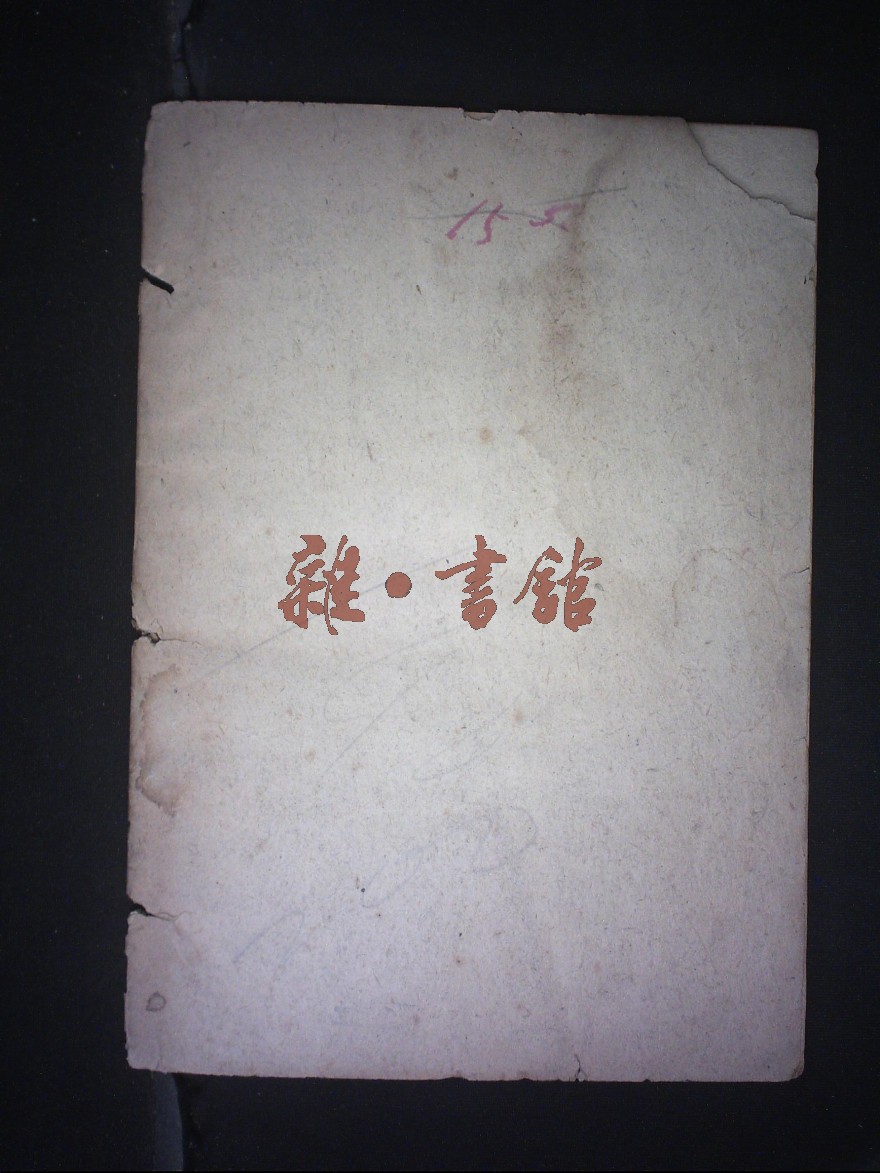 15 5
雜·書館